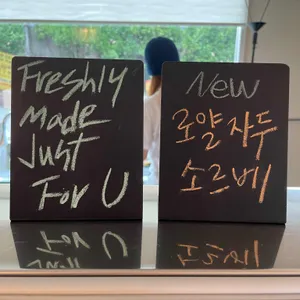 Freshly
Made
Just
For U
New
로얄자두
소르베